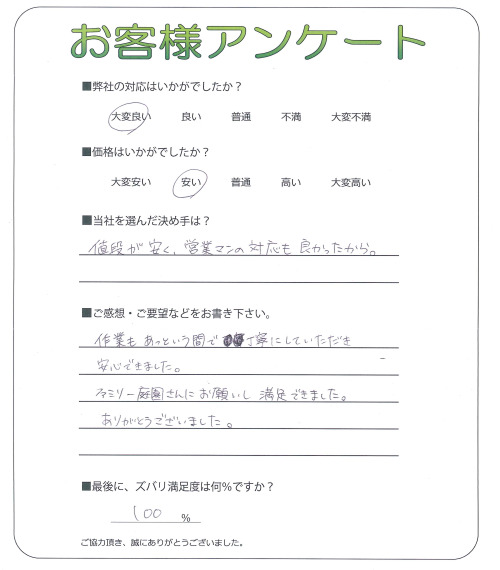 お客様アンケート
■弊社の対応はいかがでしたか？
大変良い 良い 普通 不満 大変不満
■価格はいかがでしたか？
大変安い 安い 普通 高い 大変高い
■当社を選んだ決め手は？
値段が安く、営業マンの対応も良かったから。
■ご感想・ご要望などをお書き下さい。
作業もあっという間で丁寧にしていただき
安心できました。
ファミリー庭園さんにお願いし満足できました。
ありがとうございました。
■最後に、ズバリ満足度は何％ですか？
100 %
ご協力頂き、誠にありがとうございました。